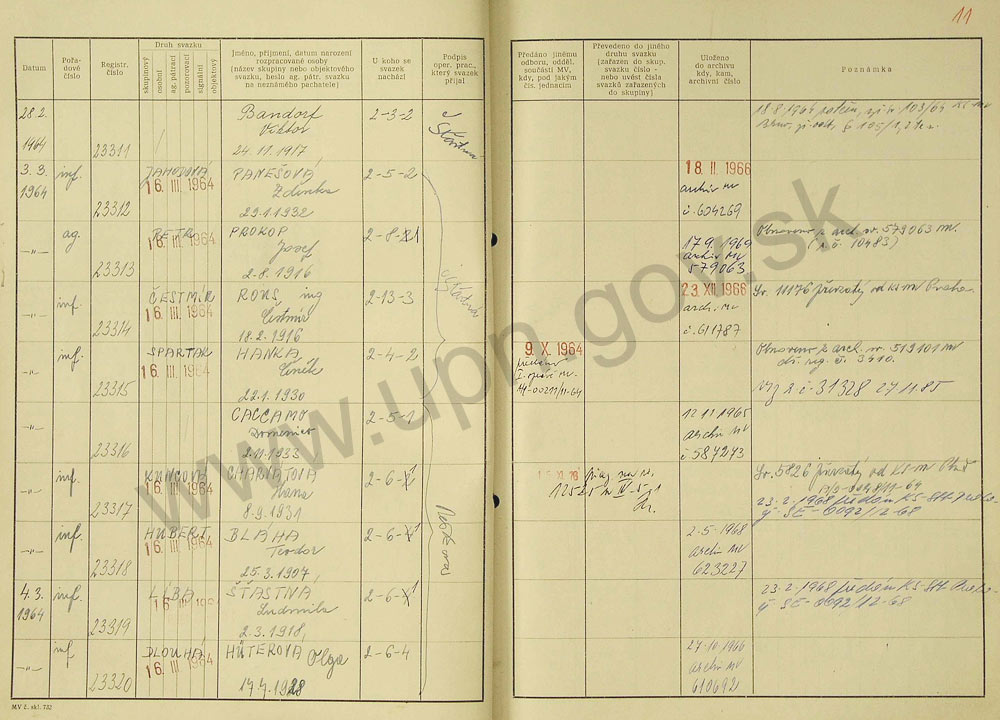 11
Datum
Pořadové číslo
Registr. číslo
Druh svazku
skupinový
osobní
ag. pátrací
pozorovací
signální
objektový
Jméno, příjmení, datum narození
rozpracované osoby
(název skupiny nebo objektového
svazku, heslo ag. pátr. svazku
na neznámého pachatele)
U koho se
svazek
nachází
Podpis
oper. prac.,
který svazek
přijal
Předáno jinému
odboru, odděl.
součásti MV,
kdy, pod jakým
čís. jednacím
Převedeno do jiného
druhu svazku
(zařazen do skup.
svazku číslo -
nebo uvést čísla
svazků zařazených
do skupiny)
Uloženo
do archivu
kdy, kam,
archivní číslo
Poznámka
28.2.
1964
23311
Bandorf
Viktor
24.11.1917
2-3-2
18.8.1964
103/64
3.3.
1964
inf.
23312
JAHODOVÁ
16. III. 1964
PANEŠOVÁ
Zdenka
29.1.1932
2-5-2
18. II. 1966
archiv MV
č. 604269
-„-
ag.
23313
PETR
16. III. 1964
PROKOP
Josef
2.8.1916
2-8-
17.9.1969
archiv MV
579063
Obnoveno z arch. sv. 579063 MV.
10483)
-„-
inf.
23314
ČESTMÍR
16. III. 1964
ROUS, ing
Čestmír
18.2.1916
2-13-3
23. XII. 1966
arch. MV
č. 611787
Sv. 11176 převzatý od KS-MV Praha
-„-
inf.
23315
SPARTAK
16. III. 1964
HANKA
Čeněk
22.1.1930
2-4-2
9. X. 1964
předán
Obnoveno z arch. sv. 519101 MV
31328 27.11.85
-„-
23316
CACCAMO
Domenico
2.11.1933
2-5-1
12.11.1965
archiv MV
č. 587243
-„-
inf.
23317
KUNCOVÁ
16. III. 1964
CHARVÁTOVÁ
Hana
8.9.1931
2-6-
Sv. 5826 převzatý od KS-MV
23.2.1968 předán KS-StB Praha
SE-0092/12-68
-„-
inf.
23318
HUBERT
16. III. 1964
BLÁHA
Teodor
25.3.1907
2-6-
2.5.1968
archiv MV
623227
4.3.
1964
inf.
23319
LÍBA
16. III. 1964
ŠŤASTNÁ
Ludmila
2.3.1918
2-6-
23.2.1968 předán KS-StB Praha
SE-0092/12-68
-„-
inf
23320
DLOUHÁ
16. III. 1964
HŮTEROVÁ
Olga
2-6-4
27.10.1966
archiv MV
610692
MV č. skl. 732
www.upn.gov.sk